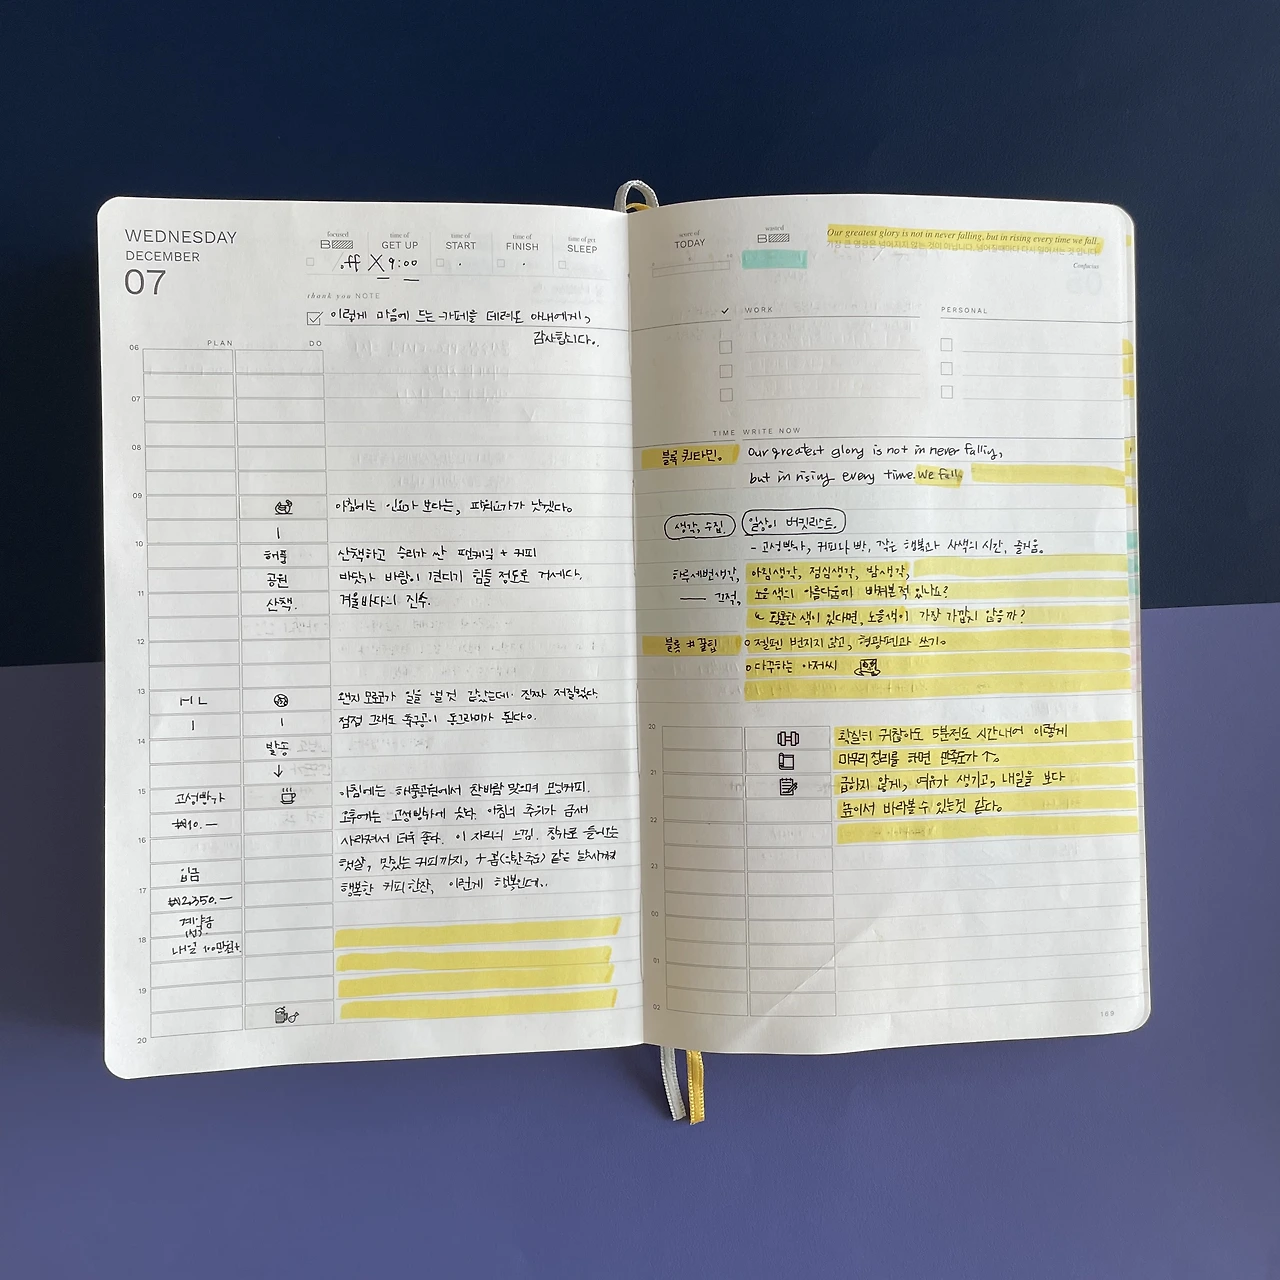 WEDNESDAY
DECEMBER
07
focused
B
time of
GET UP
time of
START
time of
FINISH
time of get
SLEEP
off X 9:00
thank you NOTE
이렇게 마음에 드는 카페를 데려온 아내에게,
감사합니다.
PLAN
DO
06
07
08
09
아침에는 인요가 보다는, 파워요가가 낫겠다.
10
해풍
산책하고 승리가 싼 팬케익 + 커피
공원
바닷가 바람이 견디기 힘들 정도로 거세다.
11
산책.
겨울바다의 진수.
12
13
HL
왠지 모로코가 일을 낼 것 같았는데. 진짜 저질렀다.
점점 그래도 축구공이 동그라미가 된다.
14
발송
↓
15
고성빵가
아침에는 해풍공원에서 찬바람 맞으며 모닝커피.
₩10.—
오후에는 고성빵가에 왔다. 아침의 추위가 금새
16
사라져서 더욱 좋다. 이 자리의 느낌. 창가로 들어오는
햇살, 맛있는 커피까지, + 꿈
입금
행복한 커피한잔, 이런게 행복인데..
17
₩12,350.—
계약금
18
내일
19
20
score of
TODAY
wasted
B
Our greatest glory is not in never falling, but in rising every time we fall.
가장 큰 영광은 넘어지지 않는 것이 아닙니다. 넘어질 때마다 다시 일어서는 것 입니다.
Confucius
✓ WORK
PERSONAL
TIME
WRITE NOW
블록 퀴타민.
Our greatest glory is not in never falling,
but in rising every time we fall.
생각, 수집.
일상의 버킷리스트.
- 고성빵가, 커피와 빵, 작은 행복과 사색의 시간, 즐거움.
하루세번생각,
아침생각, 점심생각, 밤생각,
끄적,
노을색의 아름다움에 빠져본적 있나요?
↳ 황홀한 색이 있다면, 노을색이 가장 가깝지 않을까?
블록 #꿀팁
젤펜 번지지 않고, 형광펜과 쓰기.
다꾸하는 아저씨
20
확실히 귀찮아도 5분정도 시간내어 이렇게
마무리 정리를 하면 만족도가 ↑.
21
급하지 않게, 여유가 생기고, 내일을 보다
높이서 바라볼 수 있는것 같다.
22
23
00
01
02
169